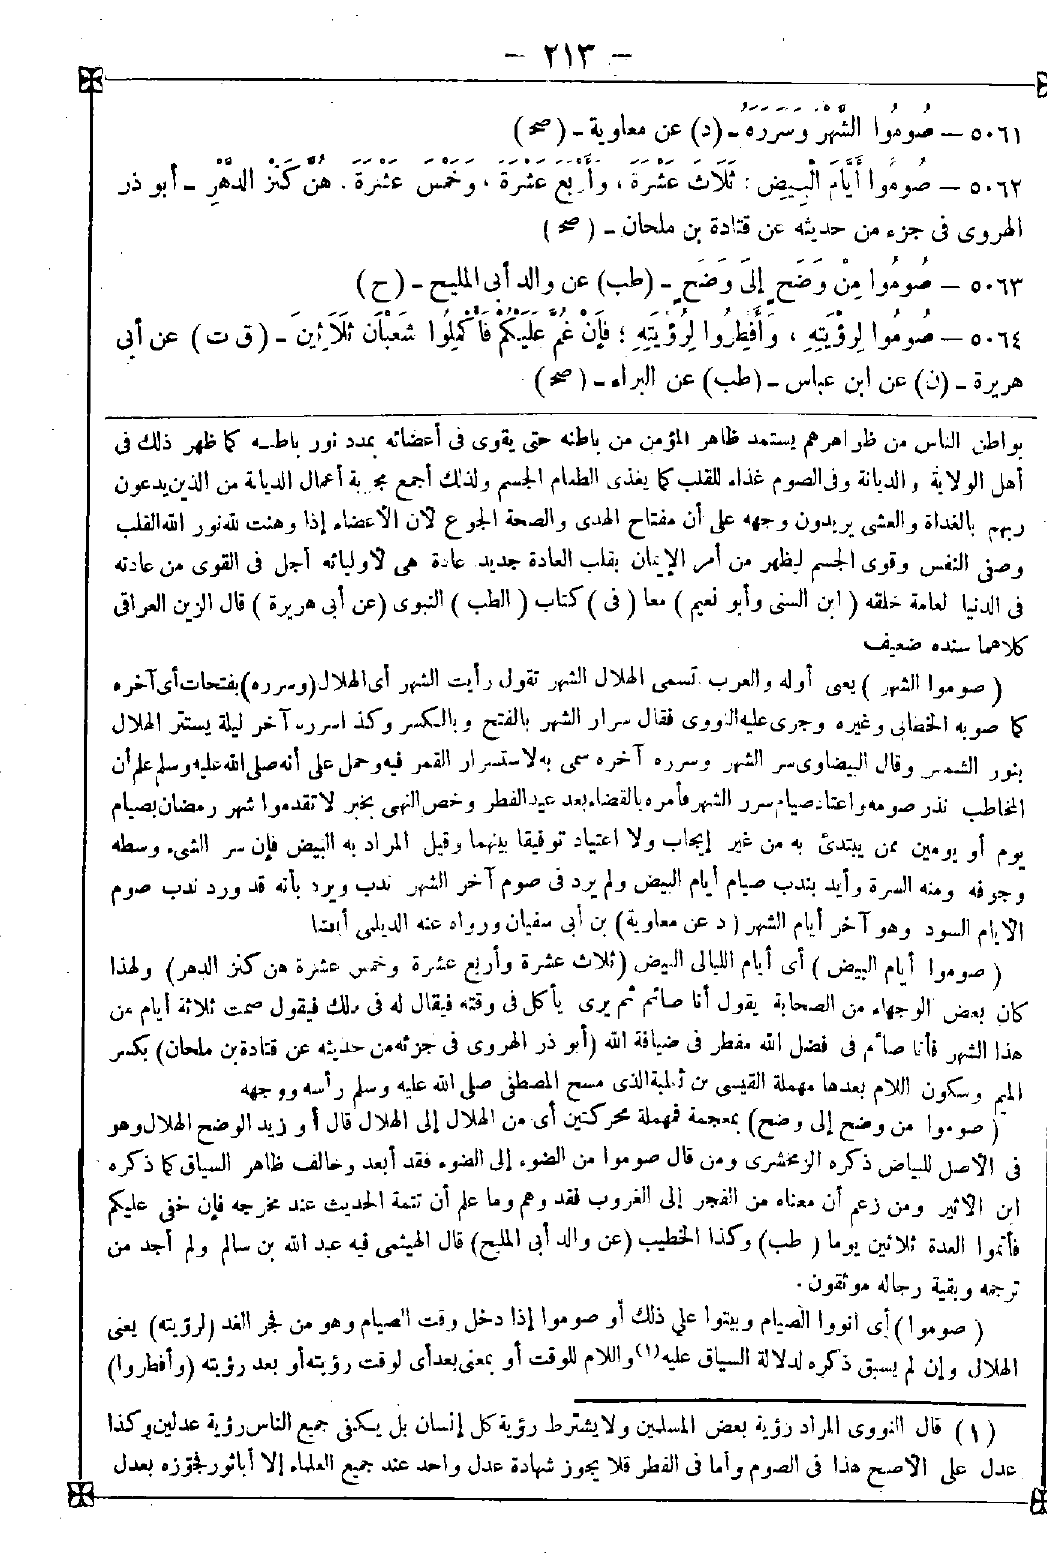 — ٢١٣ —
٥٠٦١ — صُومُوا الشَّهْرَ وَسَرَرَهُ – (د) عن معاوية – (صح)
٥٠٦٢ — صُومُوا أَيَّامَ الْبِيضِ : ثَلَاثَ عَشْرَةَ ، وَأَرْبَعَ عَشْرَةَ ، وَخَمْسَ عَشْرَةَ . هُنَّ كَنْزُ الدَّهْرِ – أبو ذر
الهروى فى جزء من حديثه عن قتادة بن ملحان – (صح)
٥٠٦٣ — صُومُوا مِنْ وَضَحٍ إِلَى وَضَحٍ – (طب) عن والد أبى المليح – (ح)
٥٠٦٤ — صُومُوا لِرُؤْيَتِهِ ، وَأَفْطِرُوا لِرُؤْيَتِهِ ؛ فَإِنْ غُمَّ عَلَيْكُمْ فَأَكْمِلُوا شَعْبَانَ ثَلَاثِينَ – (ق ت) عن أبى
هريرة – (ن) عن ابن عباس – (طب) عن البراء – (صح)
بواطن الناس من ظواهرهم يستمد ظاهر المؤمن من باطنه حتى يقوى فى أعضائه بمدد نور باطنه كما ظهر ذلك فى
أهل الولاية والديانة وفى الصوم غذاء للقلب كما يغذى الطعام الجسم ولذلك أجمع مجربة أعمال الديانة من الذين يدعون
ربهم بالغداة والعشى يريدون وجهه على أن مفتاح الهدى والصحة الجوع لأن الأعضاء إذا وهنت لله نور الله القلب
وصفى النفس وقوى الجسم ليظهر من أمر الإيمان بقلب العادة جديد عادة هى لأوليائه أجل فى القوى من عادته
فى الدنيا لعامة خلقه (ابن السنى وأبو نعيم) معا (فى) كتاب (الطب) النبوى (عن أبى هريرة) قال الزين العراقى
كلاهما سنده ضعيف
(صوموا الشهر) يعنى أوله والعرب تسمى الهلال الشهر تقول رأيت الشهر أى الهلال (وسرره) بفتحات أى آخره
كما صوبه الخطابى وغيره وجرى عليه النووى فقال سرار الشهر بالفتح وبالكسر وكذا اسرره آخر ليلة يستتر الهلال
بنور الشمس وقال البيضاوى سر الشهر وسرره آخره سمى به لاستسرار القمر فيه وحمل على أنه صلى الله عليه وسلم علم أن
المخاطب نذر صومه واعتاد صيام سرر الشهر فأمره بالقضاء بعد عيد الفطر وخص النهى بخبر لا تقدموا شهر رمضان بصيام
يوم أو يومين بمن يبتدئ به من غير إيجاب ولا اعتياد توفيقا بينهما وقيل المراد به البيض فإن سر الشىء وسطه
وجوفه ومنه السرة وأيد بندب صيام أيام البيض ولم يرد فى صوم آخر الشهر ندب ويرد بأنه قد ورد ندب صوم
الأيام السود وهو آخر أيام الشهر (د عن معاوية) بن أبى سفيان ورواه عنه الديلمى أيضا
(صوموا أيام البيض) أى أيام الليالى البيض (ثلاث عشرة وأربع عشرة وخمس عشرة هن كنز الدهر) ولهذا
كان بعض الوجهاء من الصحابة يقول أنا صائم ثم يرى يأكل فى وقته فيقال له فى ذلك فيقول صمت ثلاثة أيام من
هذا الشهر فأنا صائم فى فضل الله مفطر فى ضيافة الله (أبو ذر الهروى فى جزئه من حديثه عن قتادة بن ملحان) بكسر
الميم وسكون اللام بعدها مهملة القيسى بن ثعلبة الذى مسح المصطفى صلى الله عليه وسلم رأسه ووجهه
(صوموا من وضح إلى وضح) بمعجمة فمهملة محركتين أى من الهلال إلى الهلال قال أبو زيد الوضح الهلال وهو
فى الأصل للبياض ذكره الزمخشرى ومن قال صوموا من الضوء إلى الضوء فقد أبعد وخالف ظاهر السياق كما ذكره
ابن الأثير ومن زعم أن معناه من الفجر إلى الغروب فقد وهم وما علم أن تتمة الحديث عند مخرجه فإن خفى عليكم
فأتموا العدة ثلاثين يوما (طب) وكذا الخطيب (عن والد أبى المليح) قال الهيثمى فيه عبد الله بن سالم ولم أجد من
ترجمه وبقية رجاله موثقون .
(صوموا) أى انووا الصيام وبيتوا على ذلك أو صوموا إذا دخل وقت الصيام وهو من فجر الغد (لرؤيته) يعنى
الهلال وإن لم يسبق ذكره لدلالة السياق عليه (١) واللام للوقت أو بمعنى بعد أى لوقت رؤيته أو بعد رؤيته (وأفطروا)
(١) قال النووى المراد رؤية بعض المسلمين ولا يشترط رؤية كل إنسان بل يكفى جميع الناس رؤية عدلين وكذا
عدل على الأصح هذا فى الصوم وأما فى الفطر فلا يجوز شهادة عدل واحد عند جميع العلماء إلا أبا ثور فجوزه بعدل